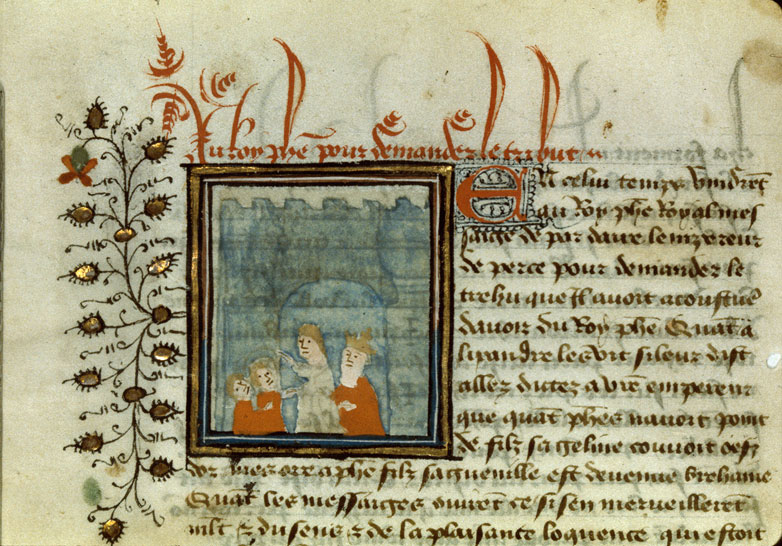 Au roy phe pour demander le tribut
En celui temps vindrēt
au Roy phe Royal mes
saige de par daire lempereur
de perce pour demander le
trehu que Il avoit acoustue
davoir du Roy phe Quāt a
lixandre les vit si leur dist
allez dictez a vrē empereur
que quāt phes navoit point
de filz sa geline couvoit oefz
dor mes ore a phe filz sa guenille est devenue brehaine
Quāt les messaiges ouirēt ce si sen merveillerēt
mlt & du sens & de la plaisante loquence qui estoit